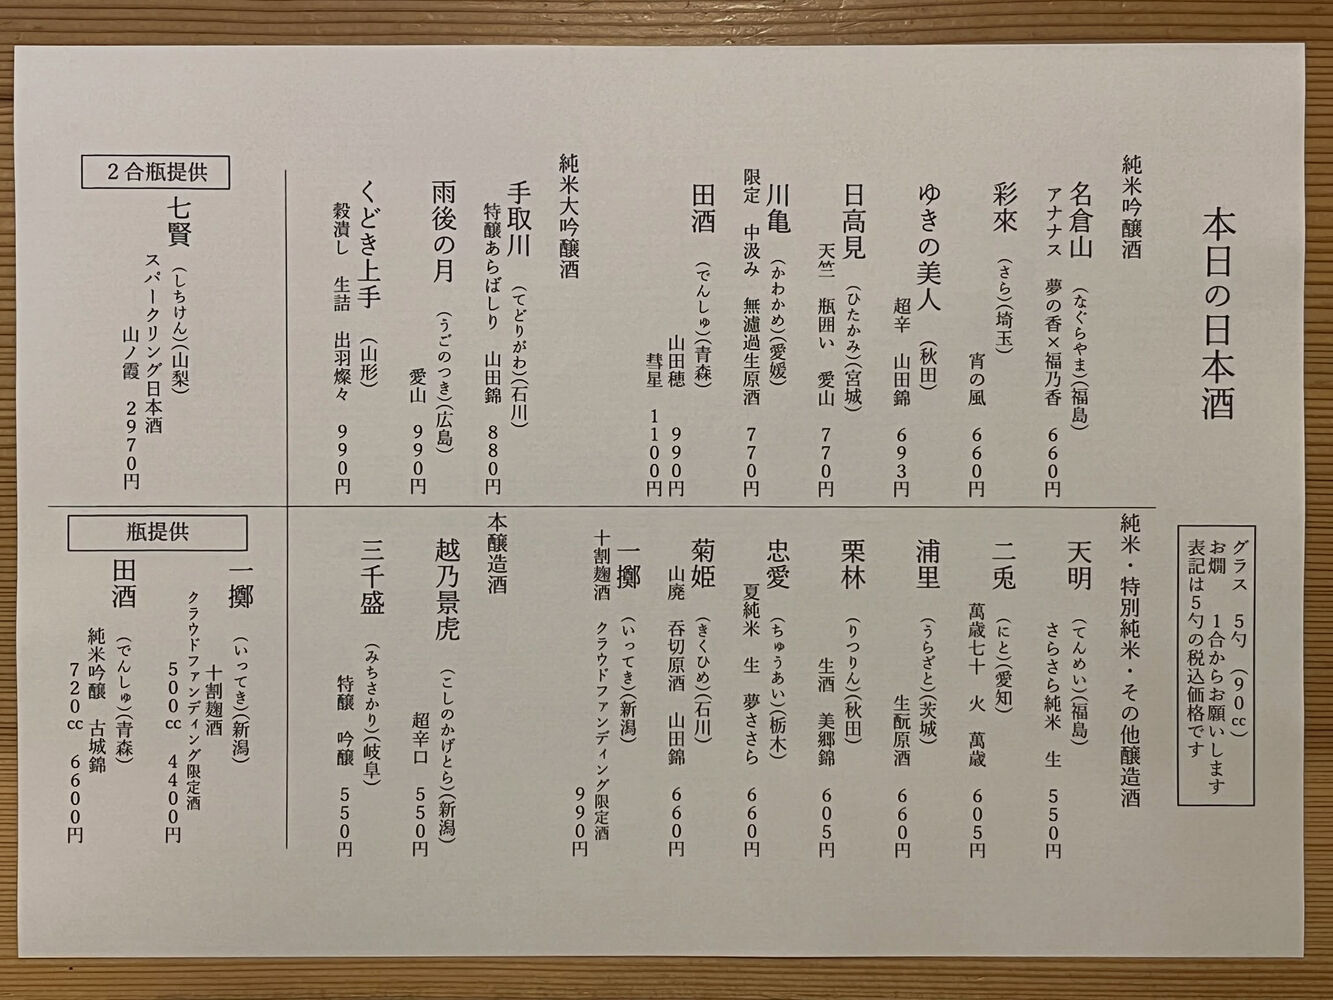 本日の日本酒
グラス　5勺　(90cc)
お燗　1合からお願いします
表記は5勺の税込価格です
純米吟醸酒
名倉山　(なぐらやま)(福島)
アナナス　夢の香×福乃香　660円
彩來　(さら)(埼玉)
宵の風　660円
ゆきの美人　(秋田)
超辛　山田錦　693円
日高見　(ひたかみ)(宮城)
天竺　瓶囲い　愛山　770円
川亀　(かわかめ)(愛媛)
限定　中汲み　無濾過生原酒　770円
田酒　(でんしゅ)(青森)
山田穂　990円
彗星　1100円
純米大吟醸酒
手取川　(てどりがわ)(石川)
特醸あらばしり　山田錦　880円
雨後の月　(うごのつき)(広島)
愛山　990円
くどき上手　(山形)
穀潰し　生詰　出羽燦々　990円
純米・特別純米・その他醸造酒
天明　(てんめい)(福島)
さらさら純米　生　550円
二兎　(にと)(愛知)
萬歳七十　火　萬歳　605円
浦里　(うらざと)(茨城)
生酛原酒　660円
栗林　(りつりん)(秋田)
生酒　美郷錦　605円
忠愛　(ちゅうあい)(栃木)
夏純米　生　夢ささら　660円
菊姫　(きくひめ)(石川)
山廃　吞切原酒　山田錦　660円
一擲　(いってき)(新潟)
十割麹酒　クラウドファンディング限定酒
990円
本醸造酒
越乃景虎　(こしのかげとら)(新潟)
超辛口　550円
三千盛　(みちさかり)(岐阜)
特醸　吟醸　550円
2合瓶提供
七賢　(しちけん)(山梨)
スパークリング日本酒
山ノ霞　2970円
瓶提供
一擲　(いってき)(新潟)
十割麹酒
クラウドファンディング限定酒
500cc　4400円
田酒　(でんしゅ)(青森)
純米吟醸　古城錦
720cc　6600円